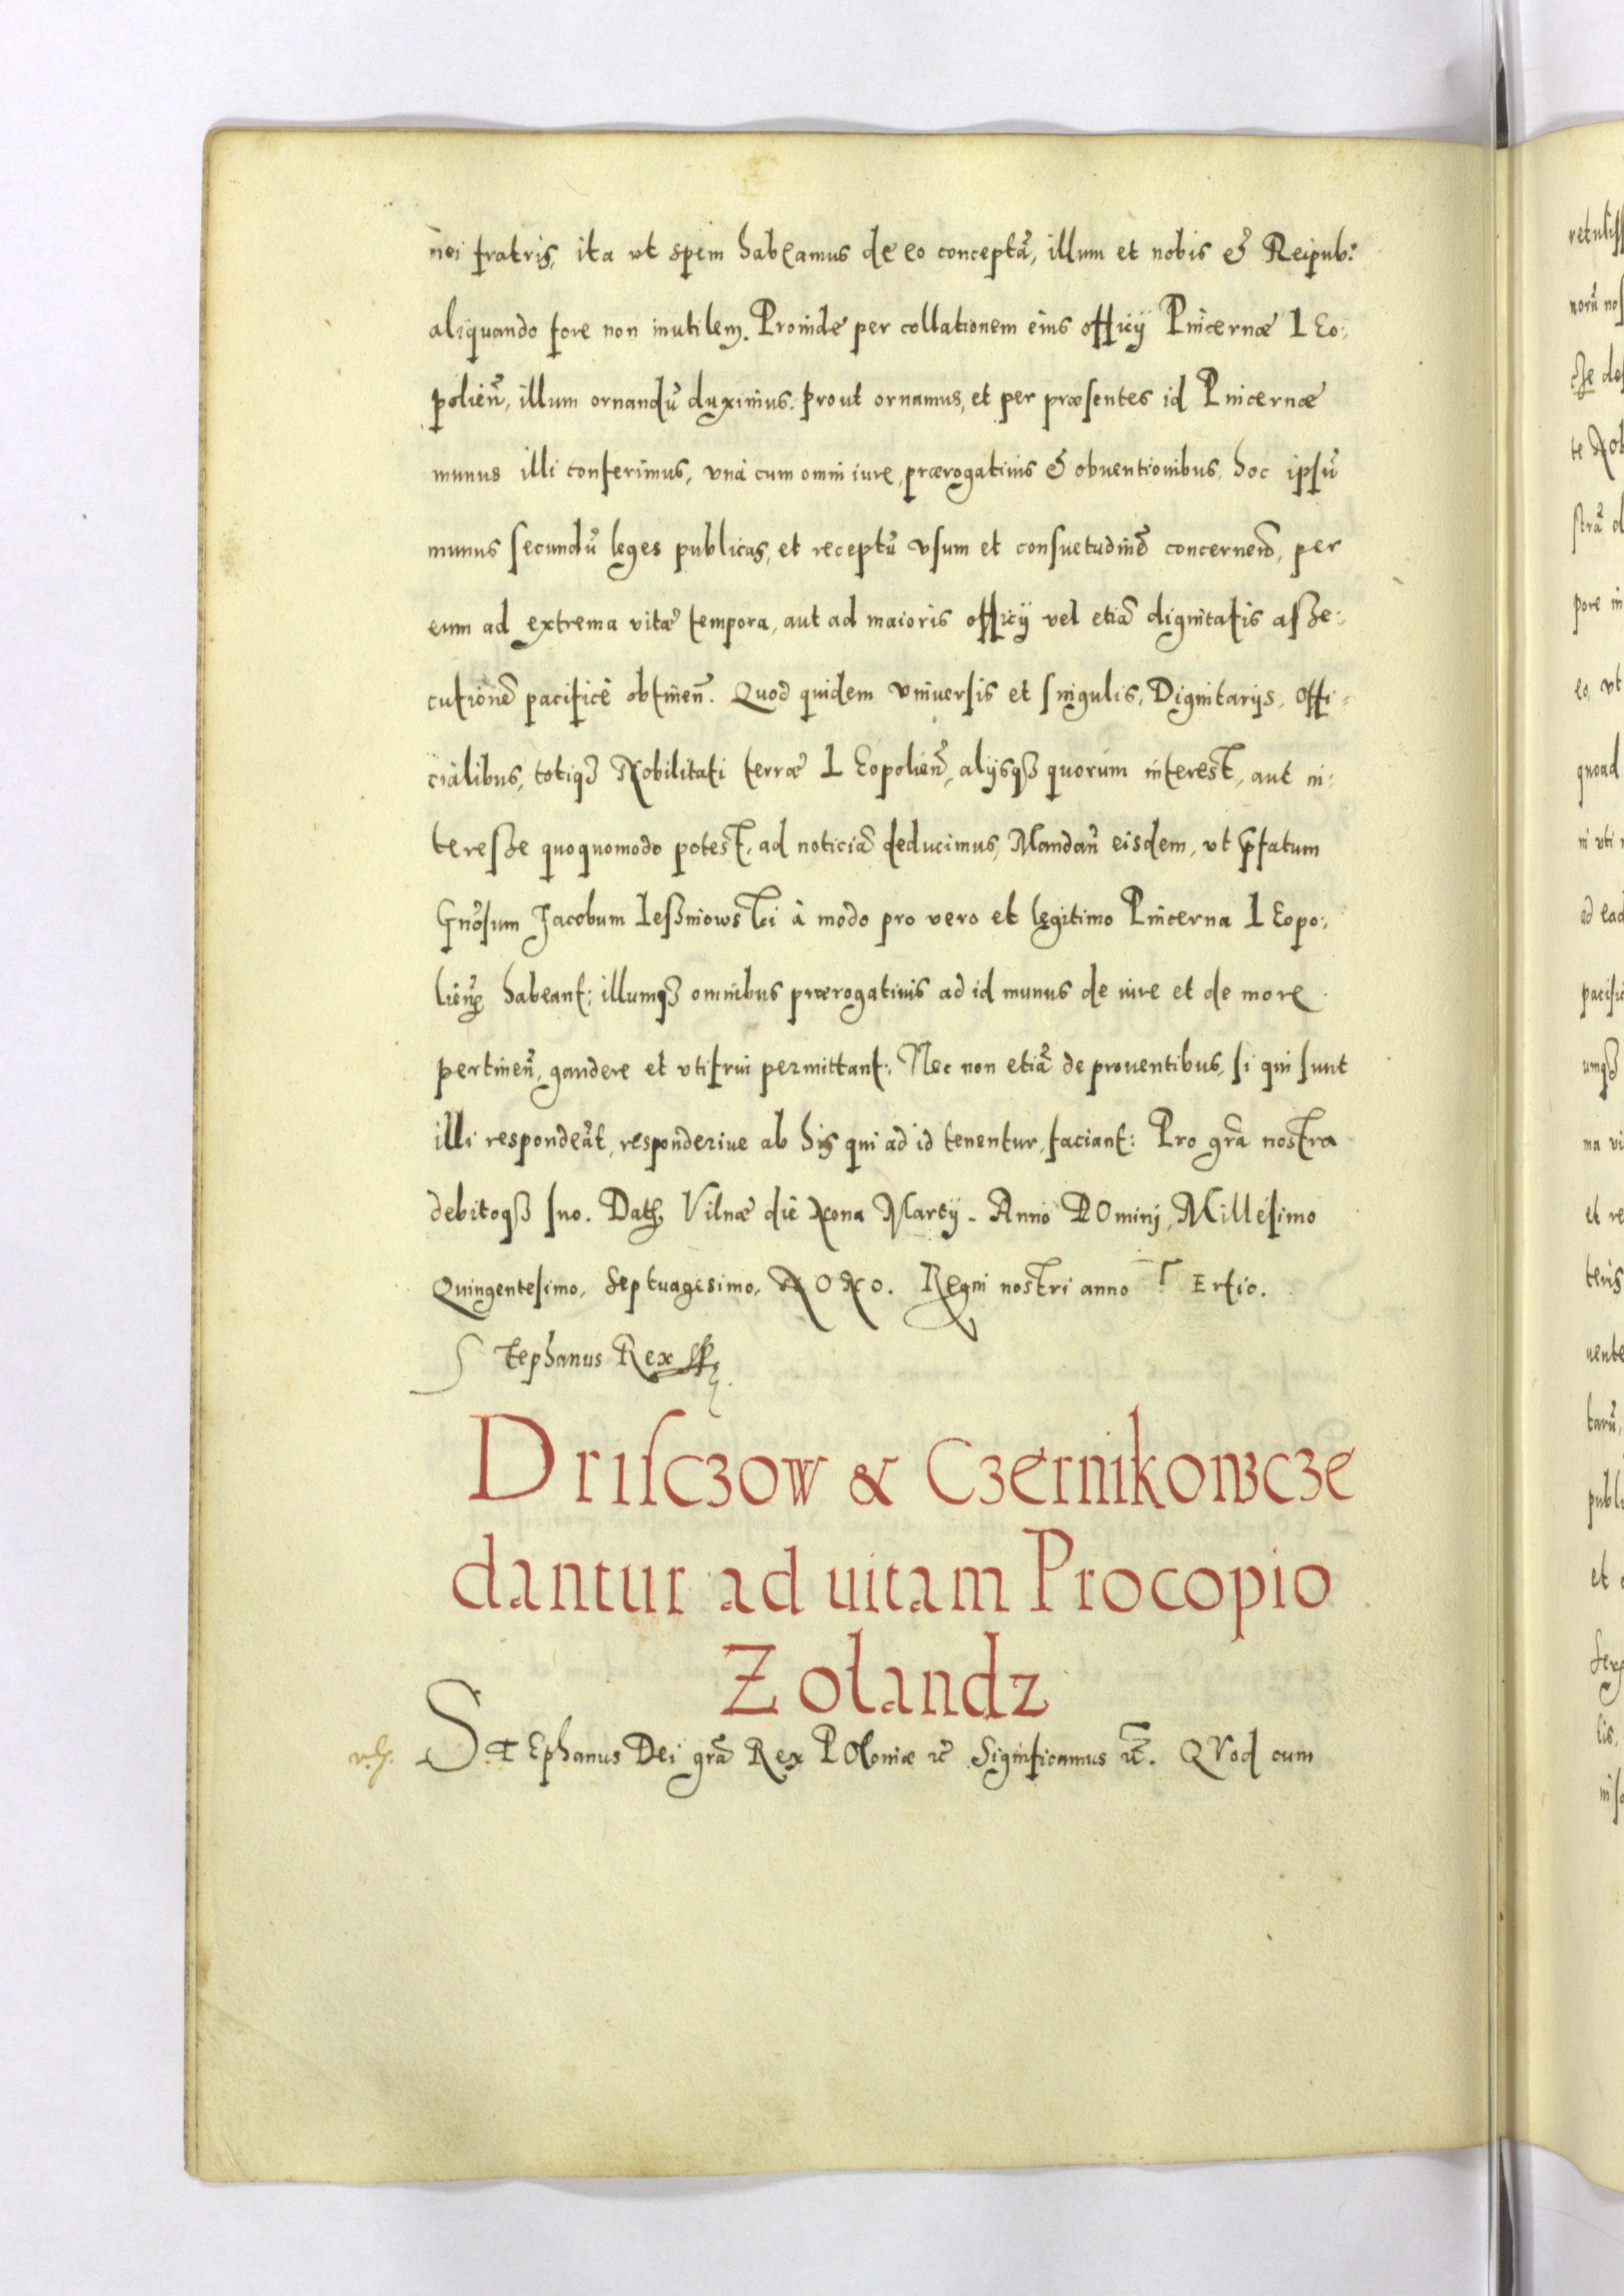 nei fratris, ita ut spem habeamus de eo conceptã, illum et nobis & Reipub:
aliquando fore non inutilem. Proinde per collationem eius officij Pincernæ LEo:
polień, illum ornandũ duximus. Prout ornamus, et per præsentes id Pincernæ
munus illi conferimus, vnà cum omni iure, prærogatiuis & obuentionibus, hoc ipsũ
munus secundũ leges publicas, et receptũ vsum et consuetudinẽ concerneñ, per
eum ad extrema vitæ tempora, aut ad maioris officij vel etiã dignitatis asse:
cutionẽ pacificè obtineñ. Quod quidem vniuersis et singulis, Dignitarijs, Offi:
cialibus, totiq3 Nobilitati terræ LEopolieñ, alijsq3 quorum interest, aut in:
teresse quoquomodo potest, ad noticiã deducimus, Mandañ eisdem, vt p̃fatum
Gñosum Jacobum Leßniowski à modo pro vero et legitimo Pincerna LEopo:
lieñ habeant; illumq3 omnibus prærogatiuis ad id munus de iure et de more
pertineñ, gaudere et vtifrui permittant: Nec non etiã de prouentibus, si qui sunt
illi respondeãt, responderiue ab his qui ad id tenentur, faciant: Pro grã nostra
debitoq3 suo. Dat Vilnæ die Nona Martij. Anno DOmini, Millesimo
Quingentesimo, Septuagesimo, NONO. Regni nostri anno TErtio.
Stephanus Rex
Drisczow & Czernikowcze
dantur ad uitam Procopio
Zolandz
STEphanus Dei grã Rex POloniæ &c̃ Significamus &c̃. QVod cum